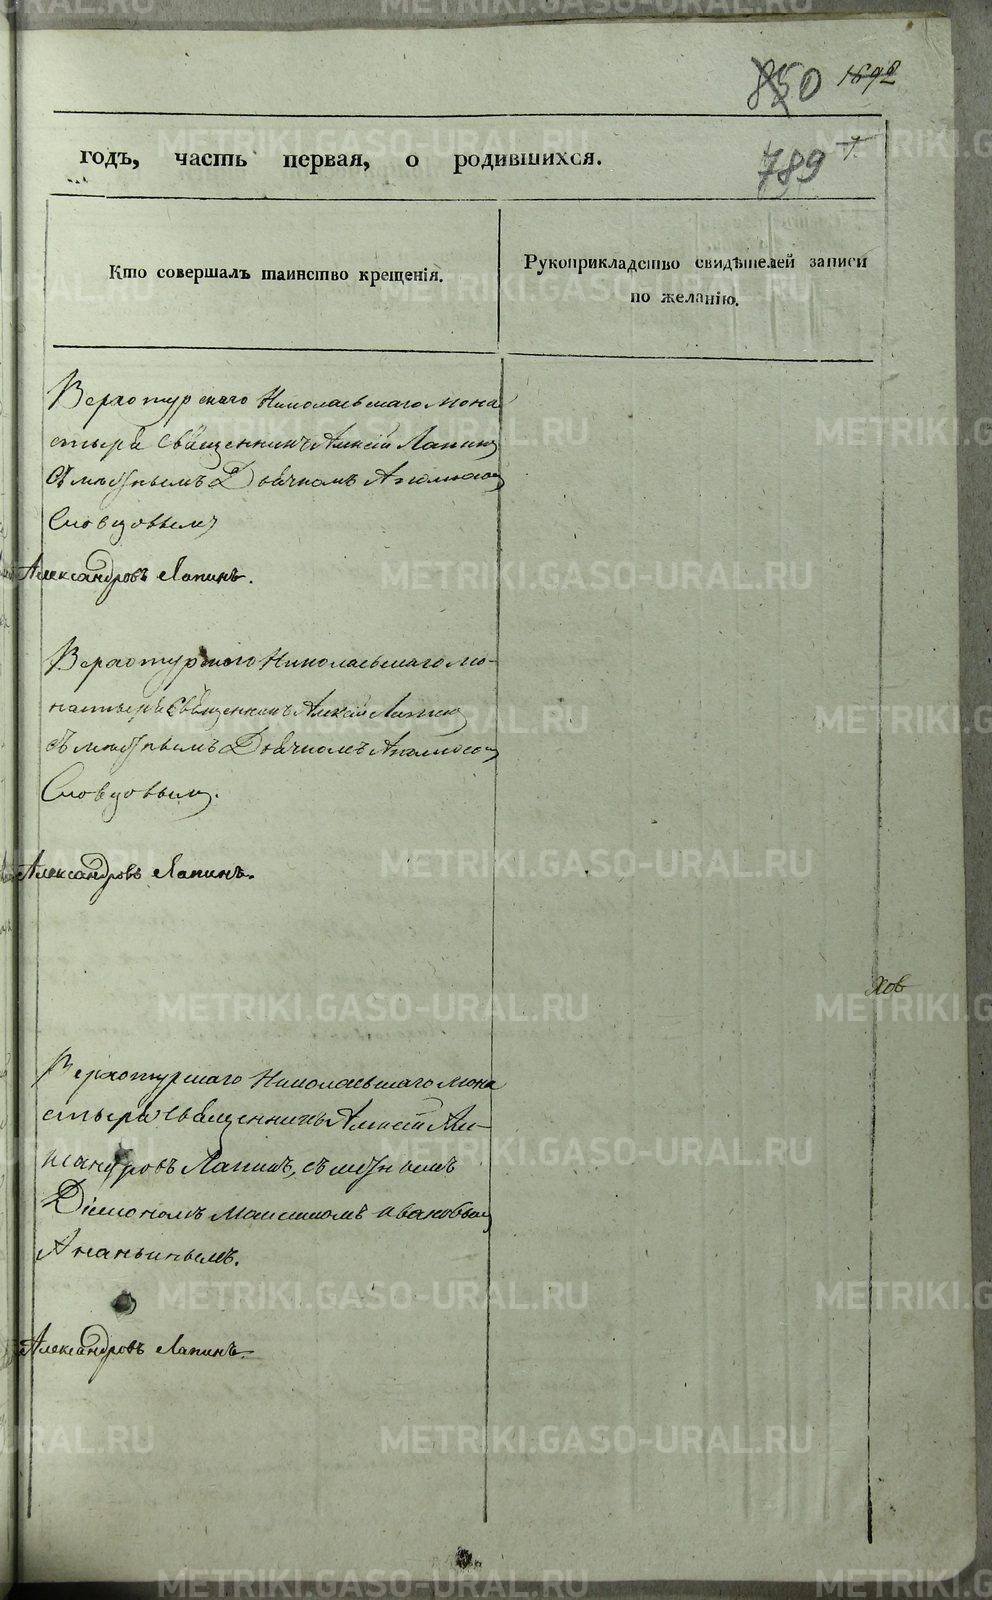 850 1692
годъ, часть первая, о родившихся.
789
Кто совершалъ таинство крещенія.
Рукоприкладство свидѣтелей записи
по желанію.
Верхотурскаго Николаевскаго мона
стыря Священникъ Алексій Лапинъ
съ Дьячкомъ
Словцовымъ
Александровъ Лапинъ.
Верхотурскаго Николаевскаго мо-
настыря Священникъ Алексій Лапинъ
съ Дьячкомъ
Словцовымъ.
Александровъ Лапинъ.
хов
Верхотурскаго Николаевскаго мона
стыря Священникъ Алексій Але-
ксандровъ Лапинъ, съ
Діакономъ Максимомъ Ивановымъ
Ананьинымъ.
Александровъ Лапинъ.
METRIKI.GASO-URAL.RU